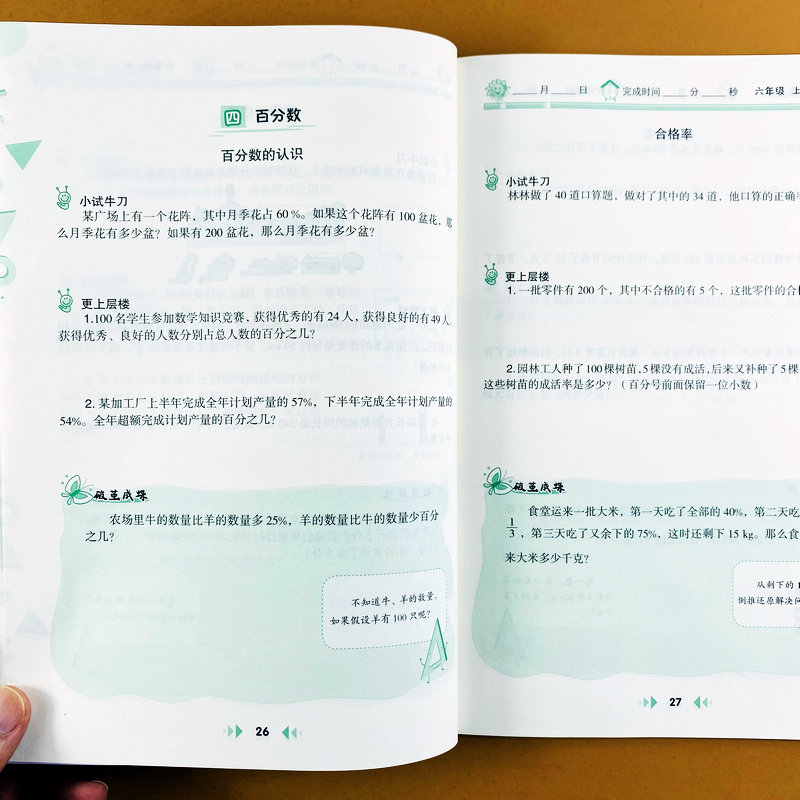 四 百分数
百分数的认识
小试牛刀
某广场上有一个花阵，其中月季花占60%。如果这个花阵有100盆花，那
么月季花有多少盆？如果有200盆花，那么月季花有多少盆？
更上层楼
1.100名学生参加数学知识竞赛，获得优秀的有24人，获得良好的有49人。
获得优秀、良好的人数分别占总人数的百分之几？
2.某加工厂上半年完成全年计划产量的57%，下半年完成全年计划产量的
54%。全年超额完成计划产量的百分之几？
破茧成蝶
农场里牛的数量比羊的数量多25%，羊的数量比牛的数量少百分
之几？
不知道牛、羊的数量。
如果假设羊有100只呢？
26
月 日 完成时间 分 秒 六年级 上
合格率
小试牛刀
林林做了40道口算题，做对了其中的34道，他口算的正确率
更上层楼
1.一批零件有200个，其中不合格的有5个，这批零件的合格
2.园林工人种了100棵树苗，5棵没有成活，后来又补种了5棵
这些树苗的成活率是多少？（百分号前面保留一位小数）
破茧成蝶
食堂运来一批大米，第一天吃了全部的40%，第二天吃
1/3，第三天吃了又余下的75%，这时还剩下15 kg。那么食
来大米多少千克？
从剩下的1
倒推还原解决问
27